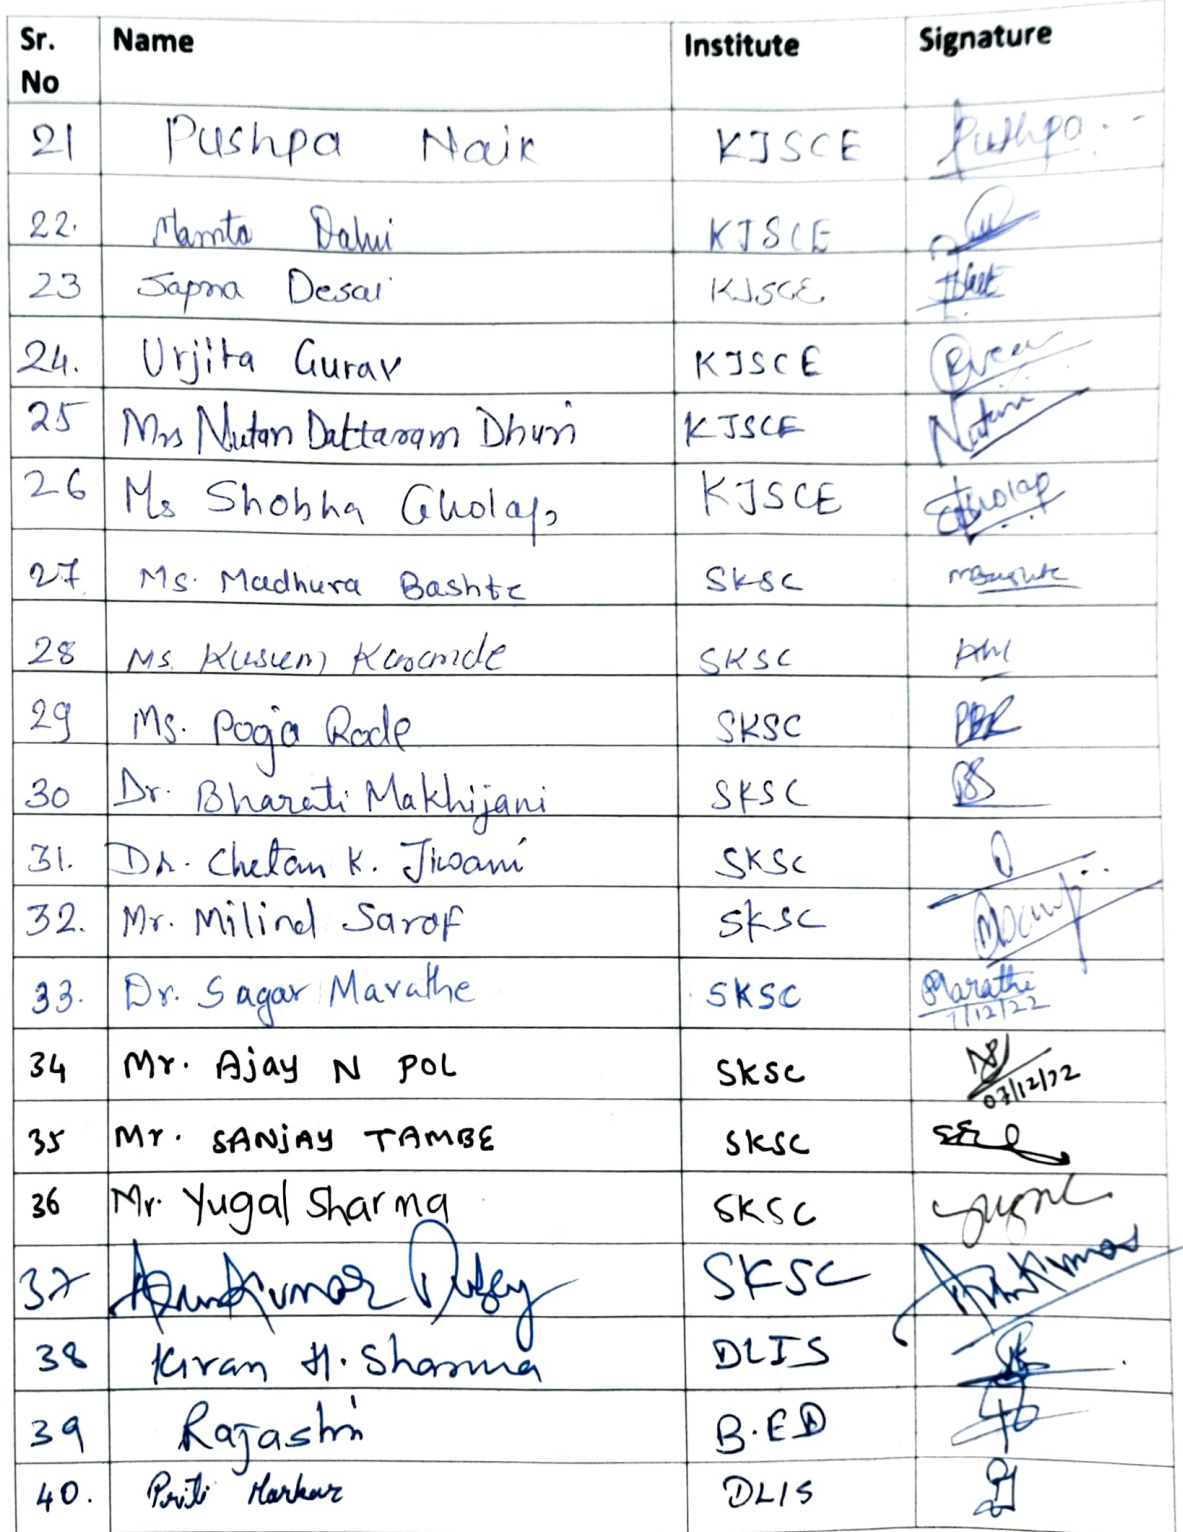 Sr. No Name Institute Signature
21 Pushpa Nair KJSCE Pushpa
22. Mamta Dalvi KJSCE
23 Sapna Desai KJSCE
24. Urjita Gurav KJSCE
25 Mrs Nutan Dattaram Dhuri KJSCE Nutan
26 Ms Shobha Gholap KJSCE Gholap
27 Ms. Madhura Bashte SKSC MBashte
28 Ms. Kusum SKSC
29 Ms. Pooja Rode SKSC PBR
30 Dr. Bharati Makhijani SKSC
31. Dr. Chetan K. Jiwani SKSC
32. Mr. Milind Sarof SKSC
33. Dr. Sagar Marathe SKSC Marathe
7/12/22
34 Mr. Ajay N POL SKSC
07/12/22
35 Mr. SANJAY TAMBE SKSC
36 Mr. Yugal Sharma SKSC Yugal
37 ArunKumar Dubey SKSC ArunKumar
38 Kiran H. Sharma DLIS
39 Rajashri B.ED
40. Priti DLIS